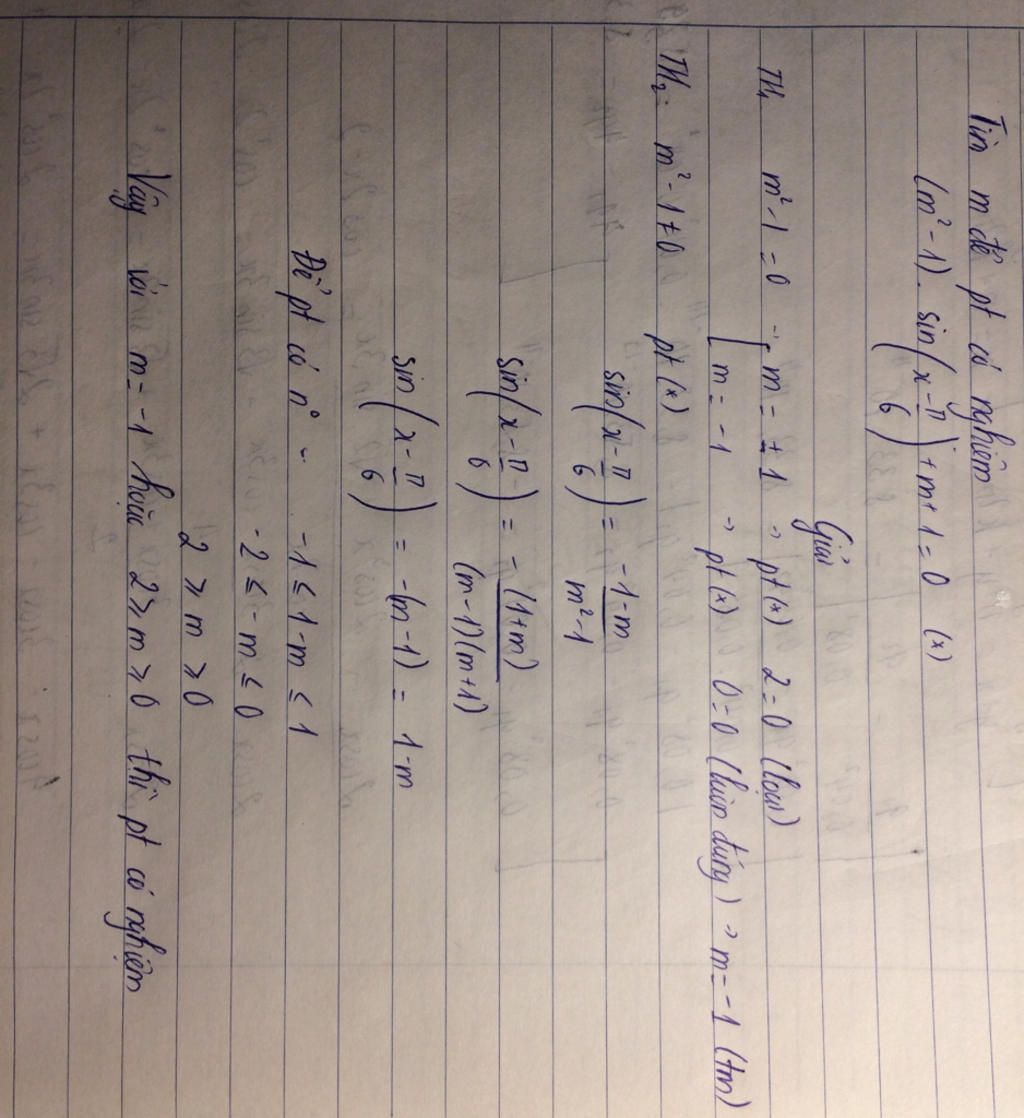 Tìm m để pt có nghiệm
(m² - 1). sin(x - π/6) + m + 1 = 0 (x)
Giải
TH1 m² - 1 = 0 → [ m = + 1 → pt (x) 2 = 0 (loại)
[ m = -1 → pt (x) 0 = 0 (luôn đúng) → m = -1 (tm)
TH2: m² - 1 ≠ 0 pt (x)
sin(x - π/6) = (-1-m)/(m² - 1)
sin(x - π/6) = -(1+m)/((m-1)(m+1))
sin(x - π/6) = -(m-1) = 1-m
Để pt có n° ~ -1 ≤ 1-m ≤ 1
-2 ≤ -m ≤ 0
2 ≥ m ≥ 0
Vậy với m = -1 hoặc 2 ≥ m ≥ 0 thì pt có nghiệm